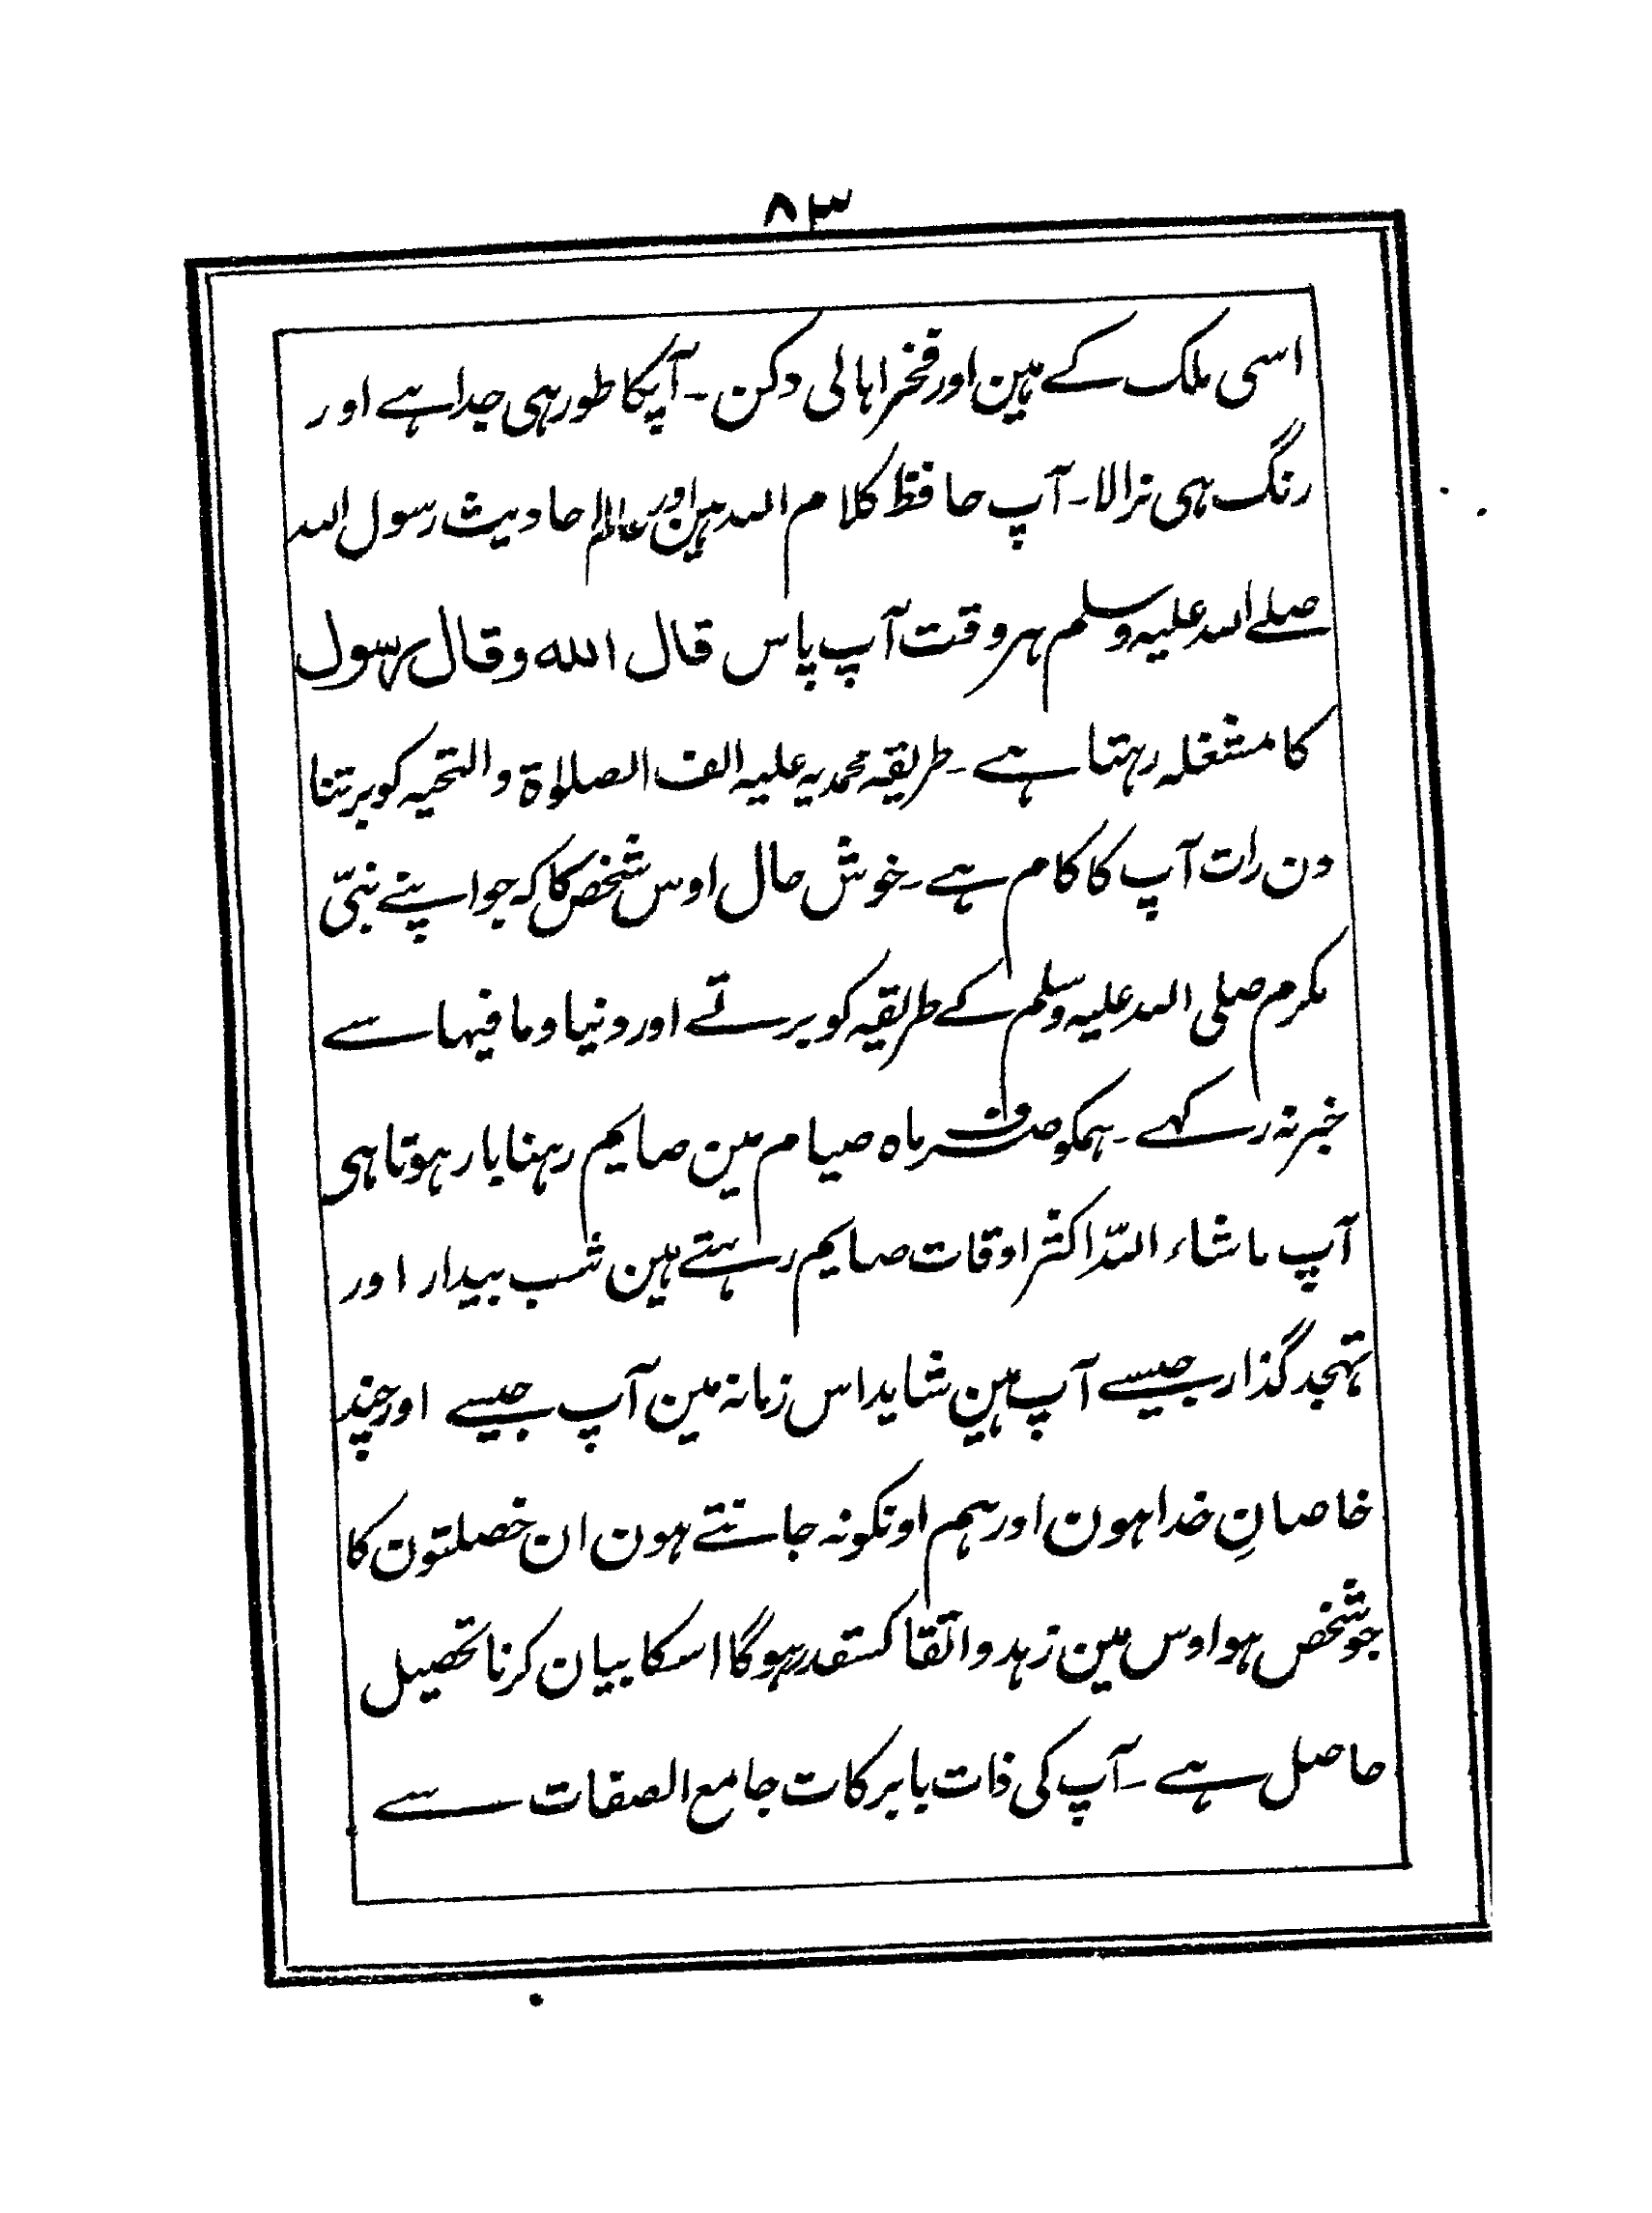 ۸۳
اسی ملک کے ہین اور فخر اہالی دکن ۔ آپکا طور ہی جدا ہے اور
رنگ ہی نرالا ۔ آپ حافظ کلام اللہ ہین اور عالم احادیث رسول اللہ
صلے اللہ علیہ وسلم ہر وقت آپ پاس قال اللہ وقال رسول
کا مشغلہ رہتا ہے ۔ طریقہ محمدیہ علیہ الف الصلاۃ والتحیہ کو برتنا
دن رات آپ کا کام ہے ۔ خوش حال اوس شخص کا کہ جو اپنے نبیّ
مکرم صلی اللہ علیہ وسلم کے طریقہ کو برتے اور دنیا و ما فیہا سے
خبر نہ رکہے ۔ ہمکو صرف ماہ صیام مین صایم رہنا بار ہوتا ہی
آپ ماشاء اللہ اکثر اوقات صایم رہتے ہین شب بیدار اور
تہجد گذار جیسے آپ ہین شاید اس زمانہ مین آپ جیسے اور چند
خاصانِ خدا ہون اور ہم اونکو نہ جانتے ہون ان خصلتون کا
جو شخص ہو اوس مین زہد و اتقا کسقدر ہوگا اسکا بیان کرنا تحصیل
حاصل ہے ۔ آپ کی ذات بابرکات جامع الصفات سے